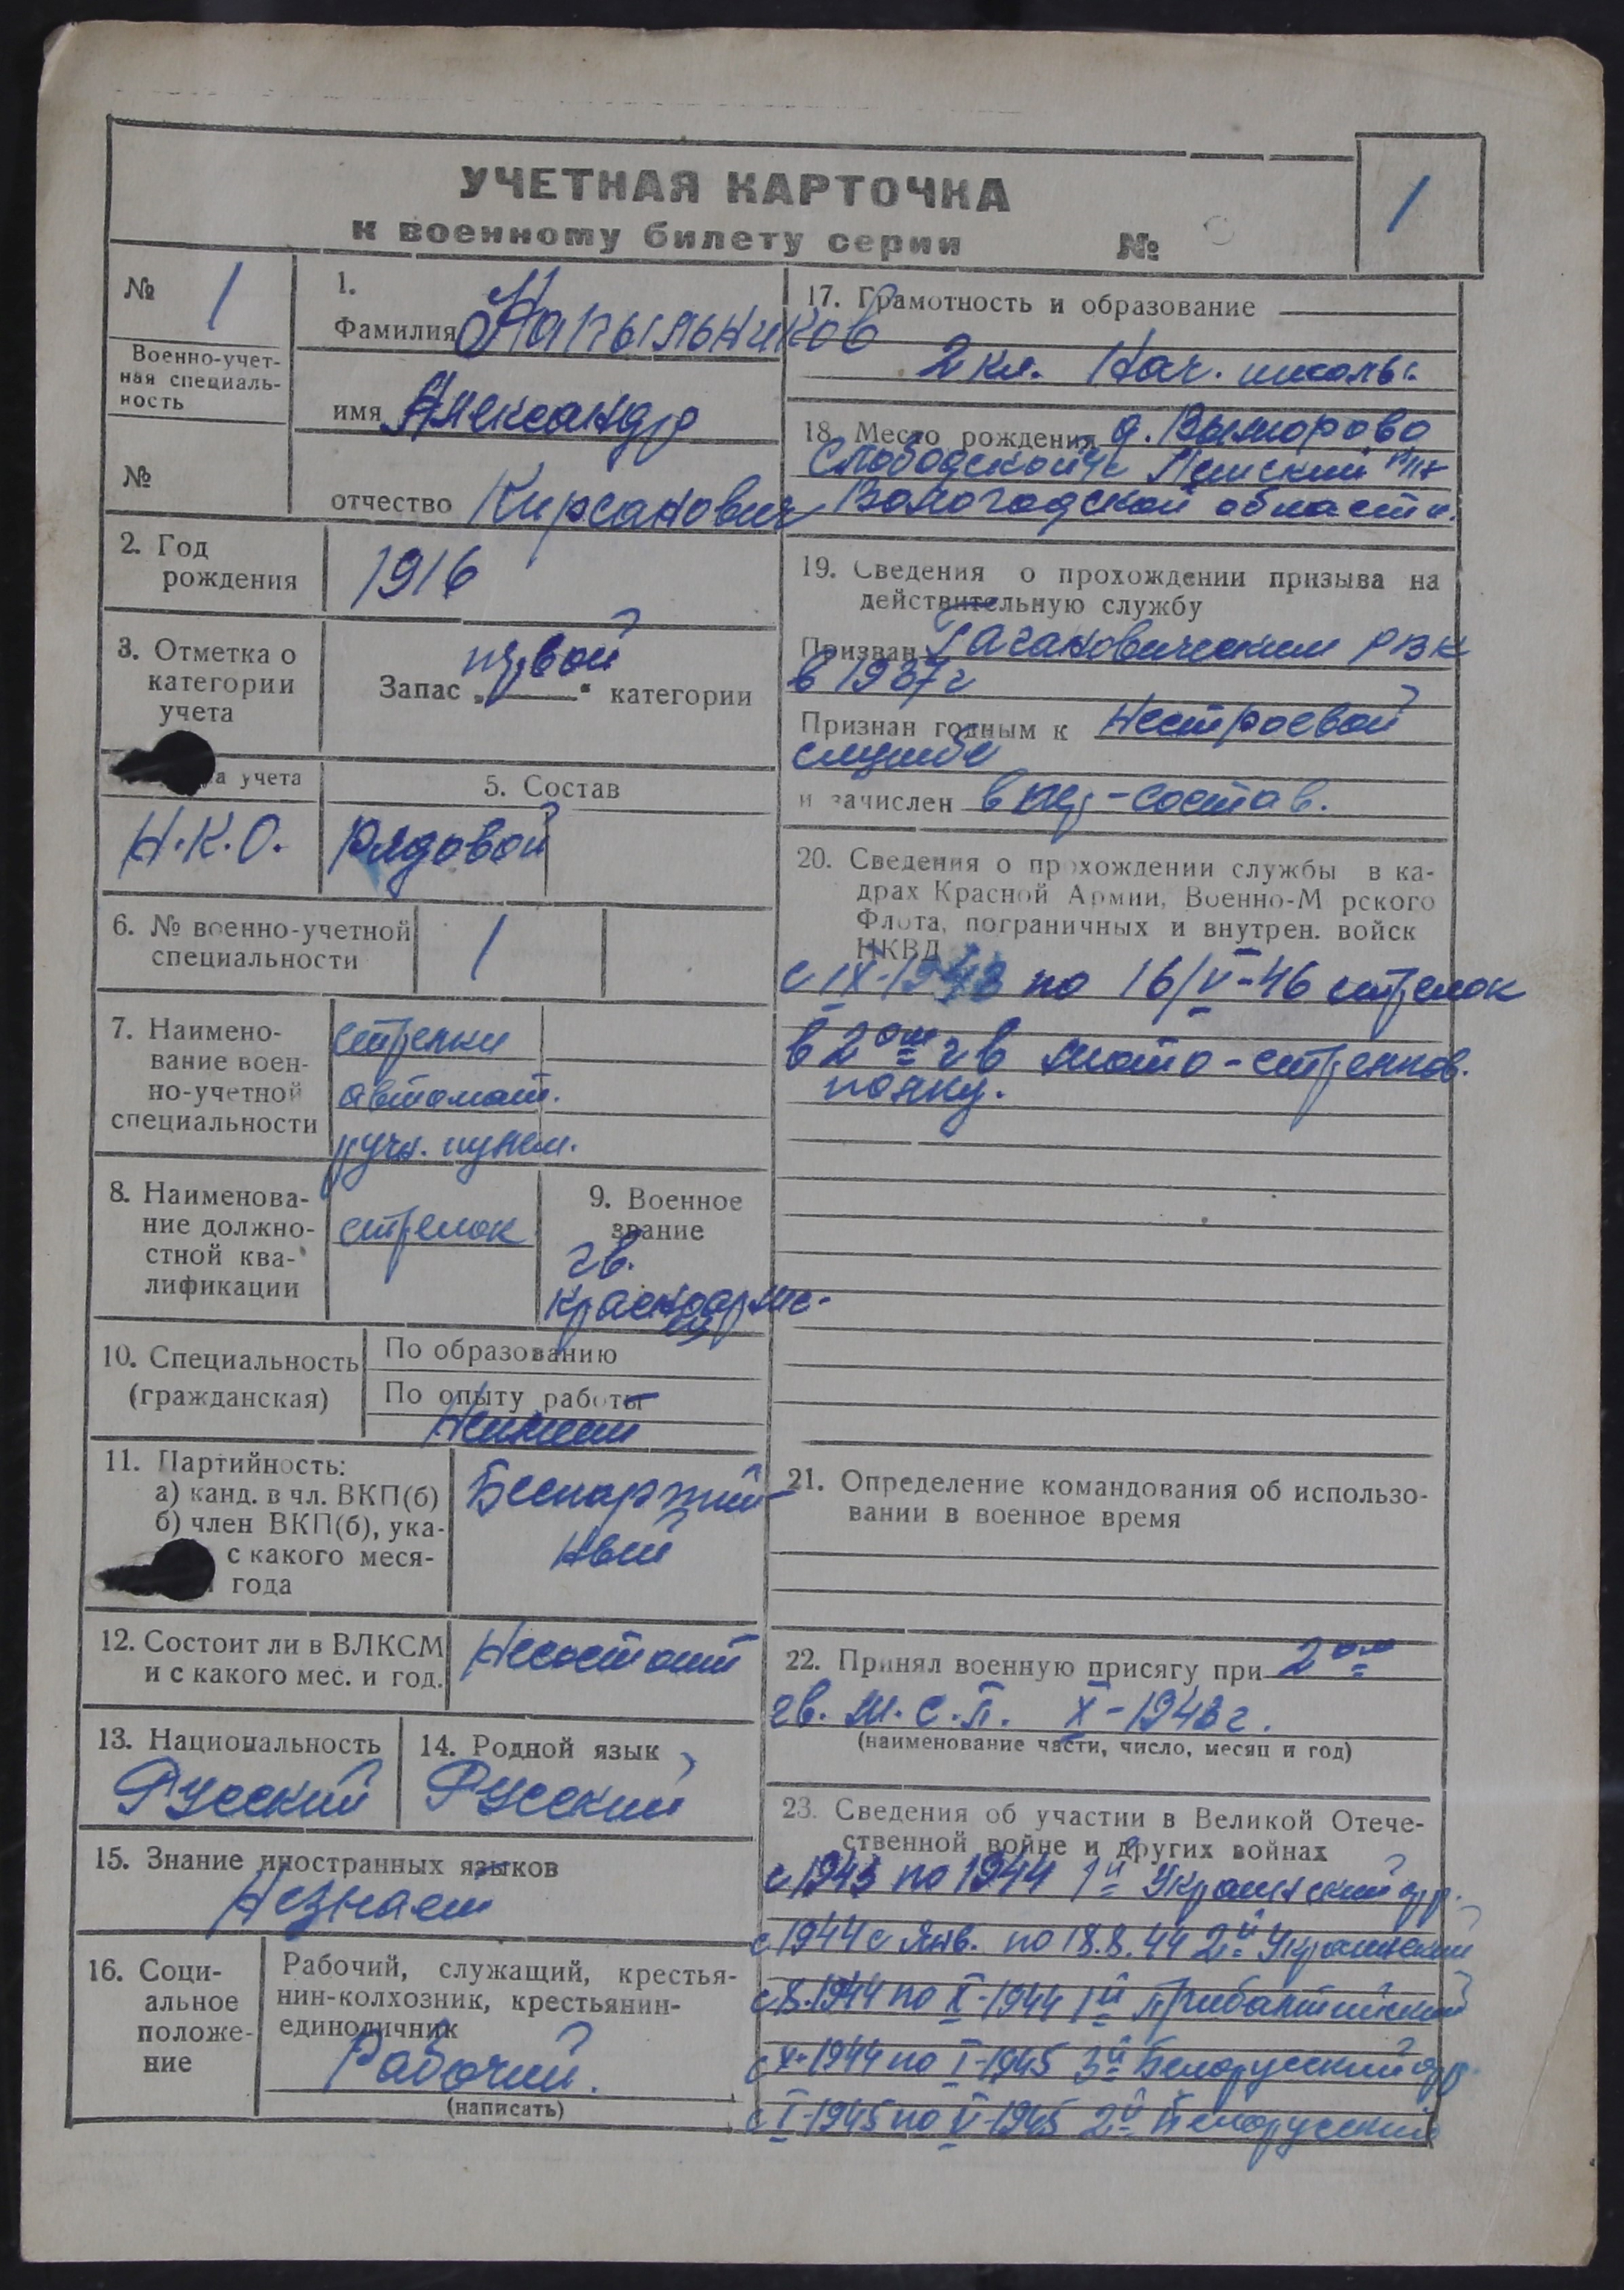 УЧЕТНАЯ КАРТОЧКА
к военному билету серии №
1
№ 1
Военно-учет-
ная специаль-
ность
№
1.
Фамилия Напыльников
имя Александр
отчество Кирсанович
2. Год
рождения
1916
3. Отметка о
категории
учета
первой
Запас „ “ категории
а учета
Н.К.О.
5. Состав
рядовой
6. № военно-учетной
специальности
1
7. Наимено-
вание воен-
но-учетной
специальности
стрелки
автомат.
ручн. пулем.
8. Наименова-
ние должно-
стной ква-
лификации
стрелок
9. Военное
звание
гв.
красноарме-
ец
10. Специальность
(гражданская)
По образованию
По опыту работы
Неимеет
11. Партийность:
а) канд. в чл. ВКП(б)
б) член ВКП(б), ука-
с какого меся-
года
Беспартий-
ный
12. Состоит ли в ВЛКСМ
и с какого мес. и год.
Несостоит
13. Национальность
Русский
14. Родной язык
Русский
15. Знание иностранных языков
Незнает
16. Соци-
альное
положе-
ние
Рабочий, служащий, крестья-
нин-колхозник, крестьянин-
единоличник
Рабочий.
(написать)
17. Грамотность и образование
2 кл. Нач. школы.
18. Место рождения д. Выморово
Слободской
Вологодской области.
19. Сведения о прохождении призыва на
действительную службу
Призван РВК
в 1937 г
Признан годным к Нестроевой
службе
и зачислен в пер-состав.
20. Сведения о прохождении службы в ка-
драх Красной Армии, Военно-М рского
Флота, пограничных и внутрен. войск
НКВД
с IX-1943 по 16/V-46 стрелок
в 2ом гв мото-стрелков.
полку.
21. Определение командования об использо-
вании в военное время
22. Принял военную присягу при 2ом
гв. М.С.П. X-1943 г.
(наименование части, число, месяц и год)
23. Сведения об участии в Великой Отече-
ственной войне и других войнах
с 1943 по 1944 1й Украинский фр.
с 1944 с янв. по 18.8.44 2й Украинский
с 8.1944 по X-1944 1й Прибалтийский
с X-1944 по I-1945 3й Белорусский фр.
с I-1945 по V-1945 2й Белорусский